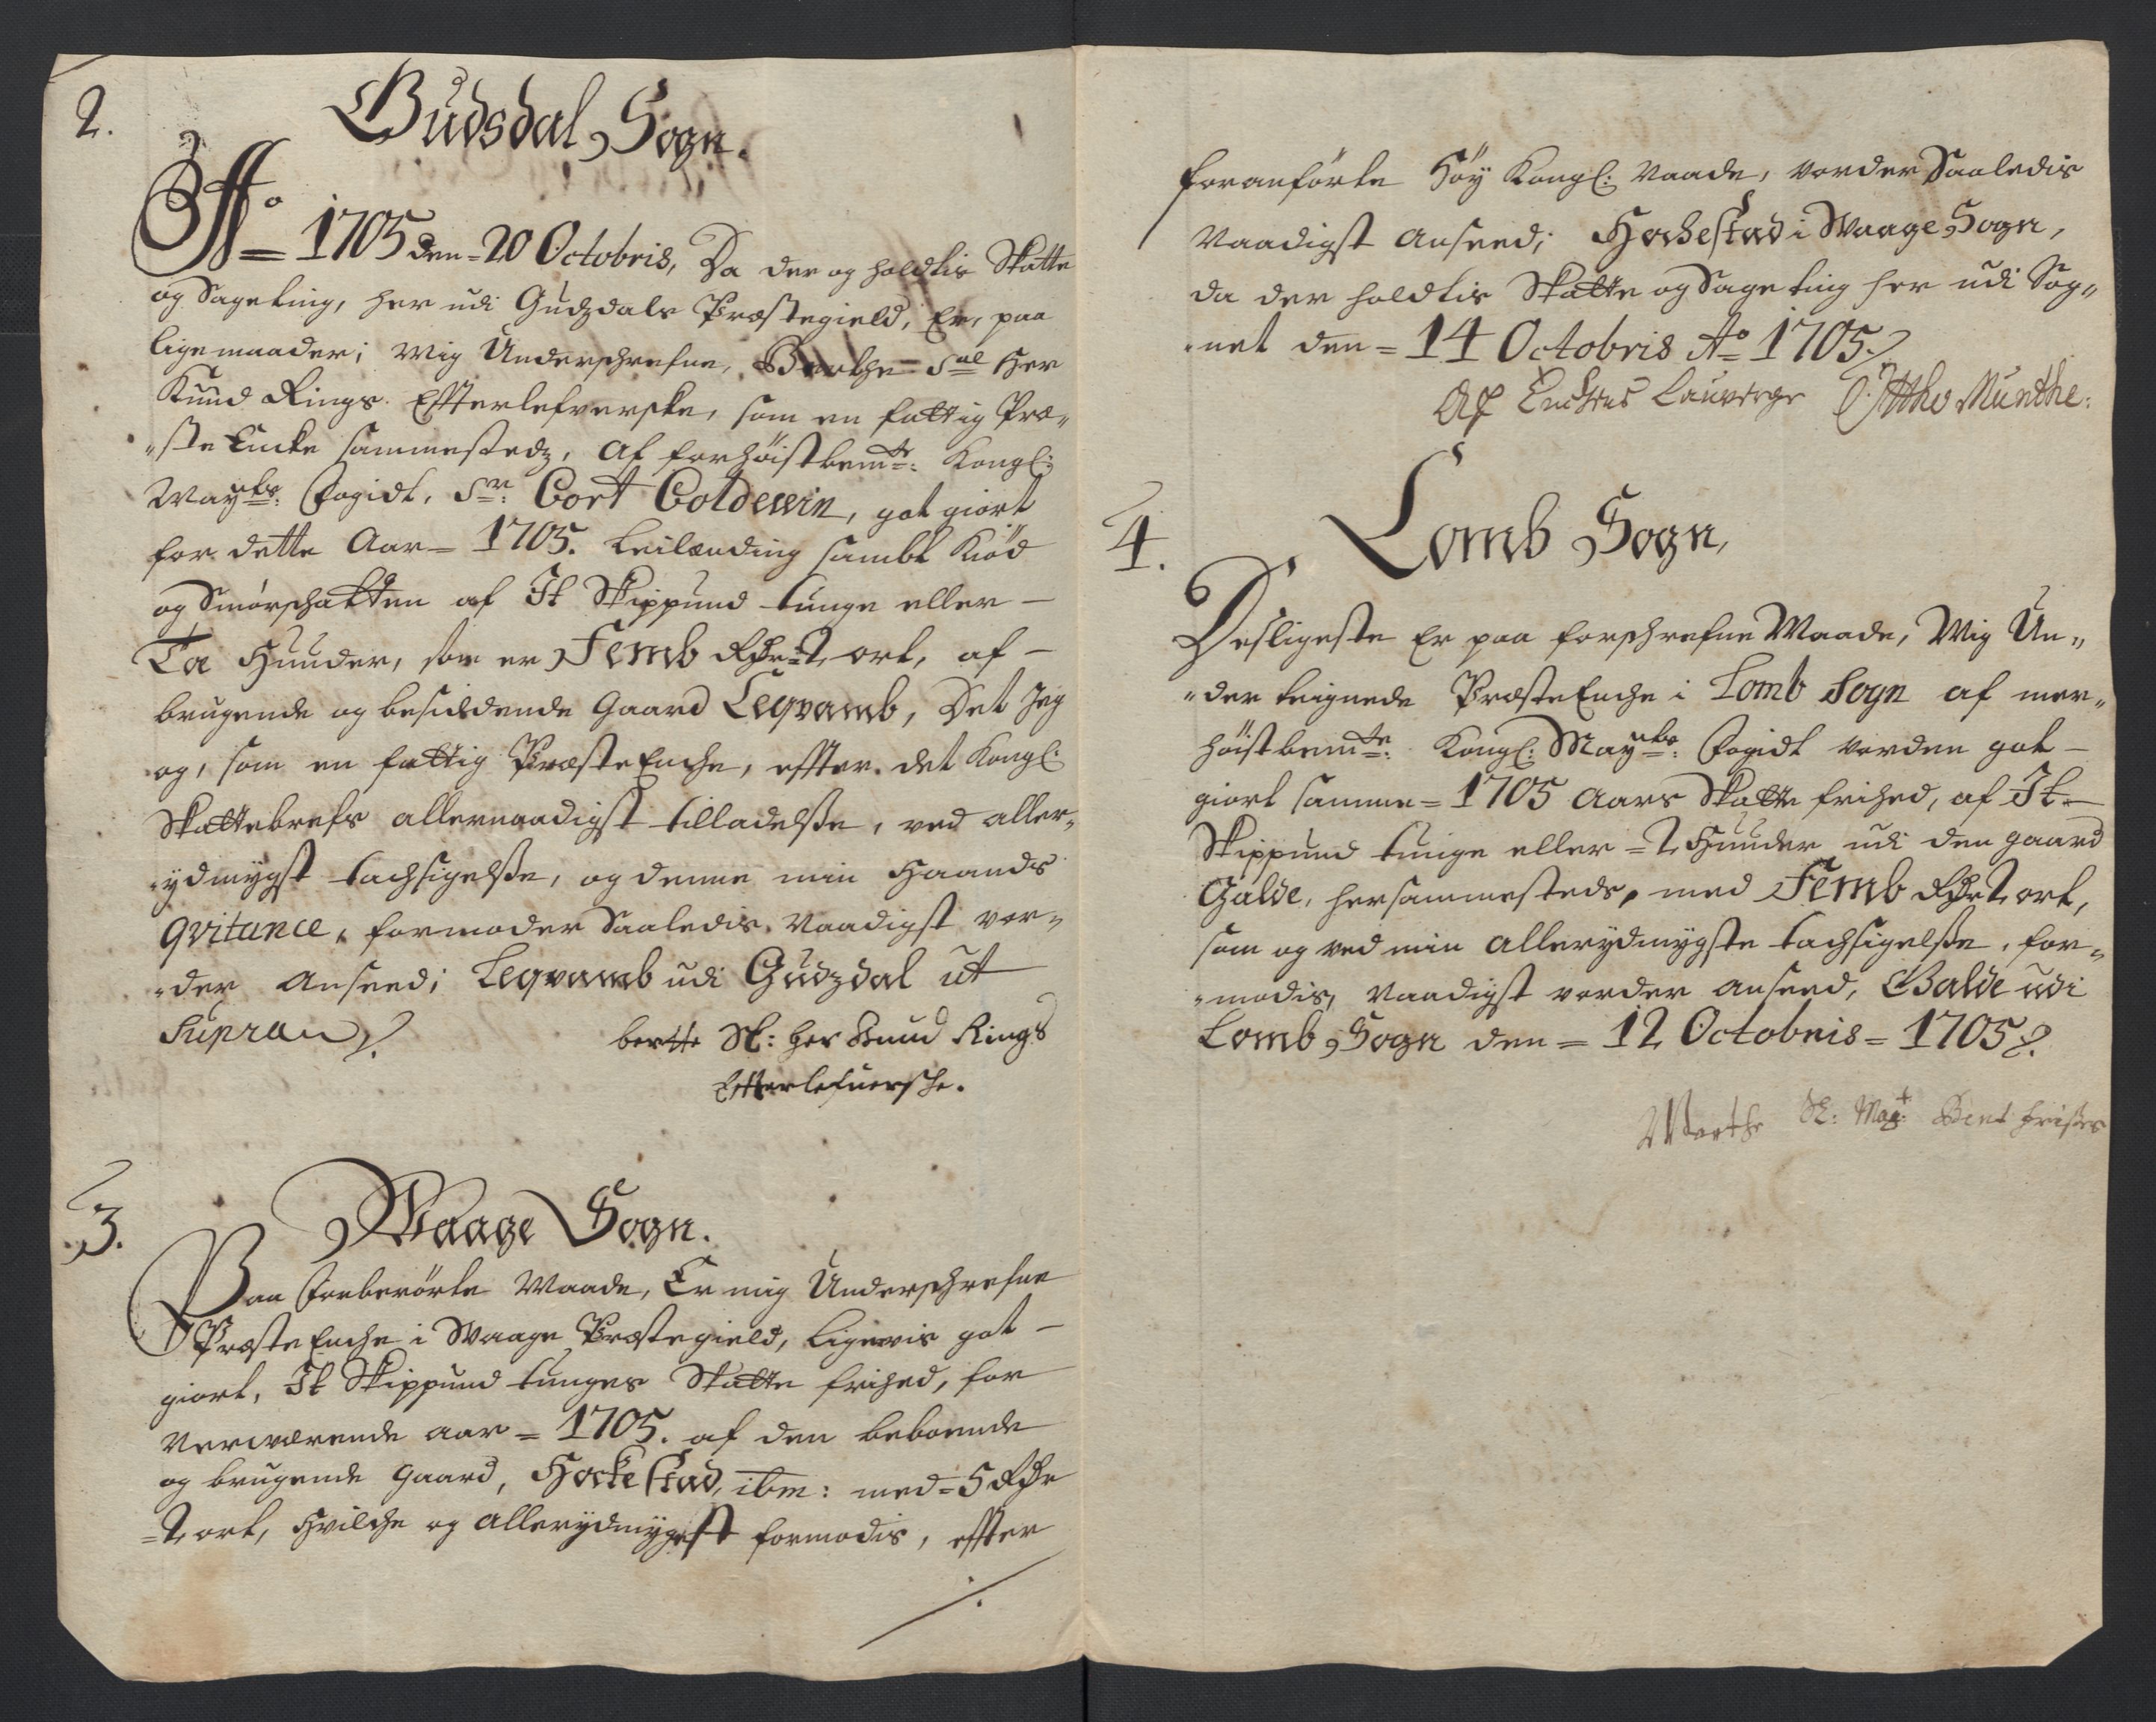 2.
Gudsdal Sogn.
Ao 1705 den = 20 Octobris, Da der og holdtis Skatte
og Sageting, her udi Gudzdals Præstegield, Er, paa
ligemaader; Mig Underschrefne, Berthe Sal Her
Knud Rings Effterlefverske, som en fattig Præ-
ste Encke sammestedz, Af forhöistbemte: Kongl:
Mayts: Fogidt, Sr: Cort Coldewin, got giort
for dette Aar = 1705. Leilænding sambt Kiöd
og Smörschatten af It Skippund tunge eller -
To Huuder, som er Femb Rdr 2 ort, af -
brugende og besiddende Gaard Leqvamb, Det Jeg
og, som en fattig Præste Enche, effter det Kongl:
Skattebrefs allernaadigst tilladelsse, ved aller-
ydmygst tachsigelsse, og denne min Haands
Qvitance, formoder Saaledis Naadigst vor-
der Anseed; Leqvamb udi Gudzdal ut
Supra
bertte Sl: her Knud Rings
Efterlefuersche.
3.
Waage Sogn.
Paa forberörte Maade, Er mig Underschrefne
Præste Enche i Waage Præstegield, ligewis got -
giort, It Skippund tunges Skatte frihed, for
Nerwærende aar = 1705. af den beboende
og brugende gaard, Hockestad, ibm: med = 5 Rdr
= 2 ort, Hvilche og allerydmygst formodis, effter
foranförte Höy Kongl: Naade, vorder Saaledis
Naadigst Anseed; Hochestad i Waage Sogn,
da der holdtis Skatte og Sageting her udi Sog-
net den = 14 Octobris Ao 1705
Otttho Munthe:
4.
Lomb Sogn,
Desligeste Er paa forschrefne Maade, Mig Un-
der teignede Præste Enche i Lomb Sogn af mer-
höistbemte: Kongl: Mayts: Fogidt vorden got -
giort samme = 1705 Aars Skatte frihed, af It -
Skippund tunge eller = 2 Huuder udi den gaard
Galde, hersammesteds, med Femb Rdr 2 ort,
som og ved min allerydmygste tachsigelsse, for-
modis, Naadigst vorder anseed, Galde udi
Lomb Sogn den = 12 Octobris = 1705
Marthe Sl: Mag: Bent